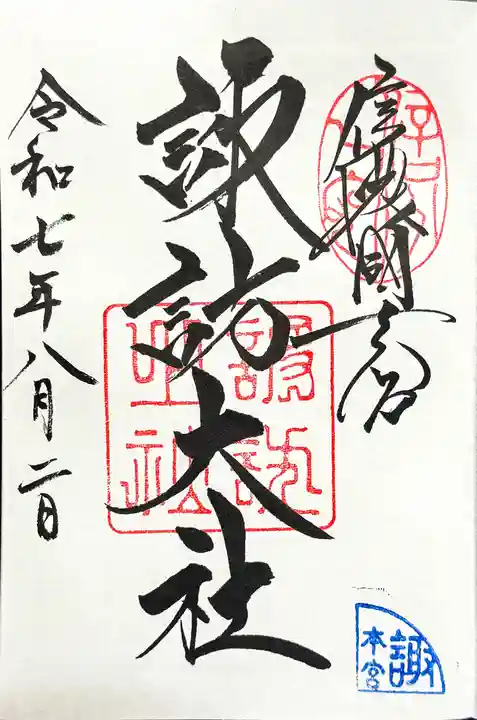 信濃國一之宮
諏訪大社
令和七年八月二日
諏
本宮